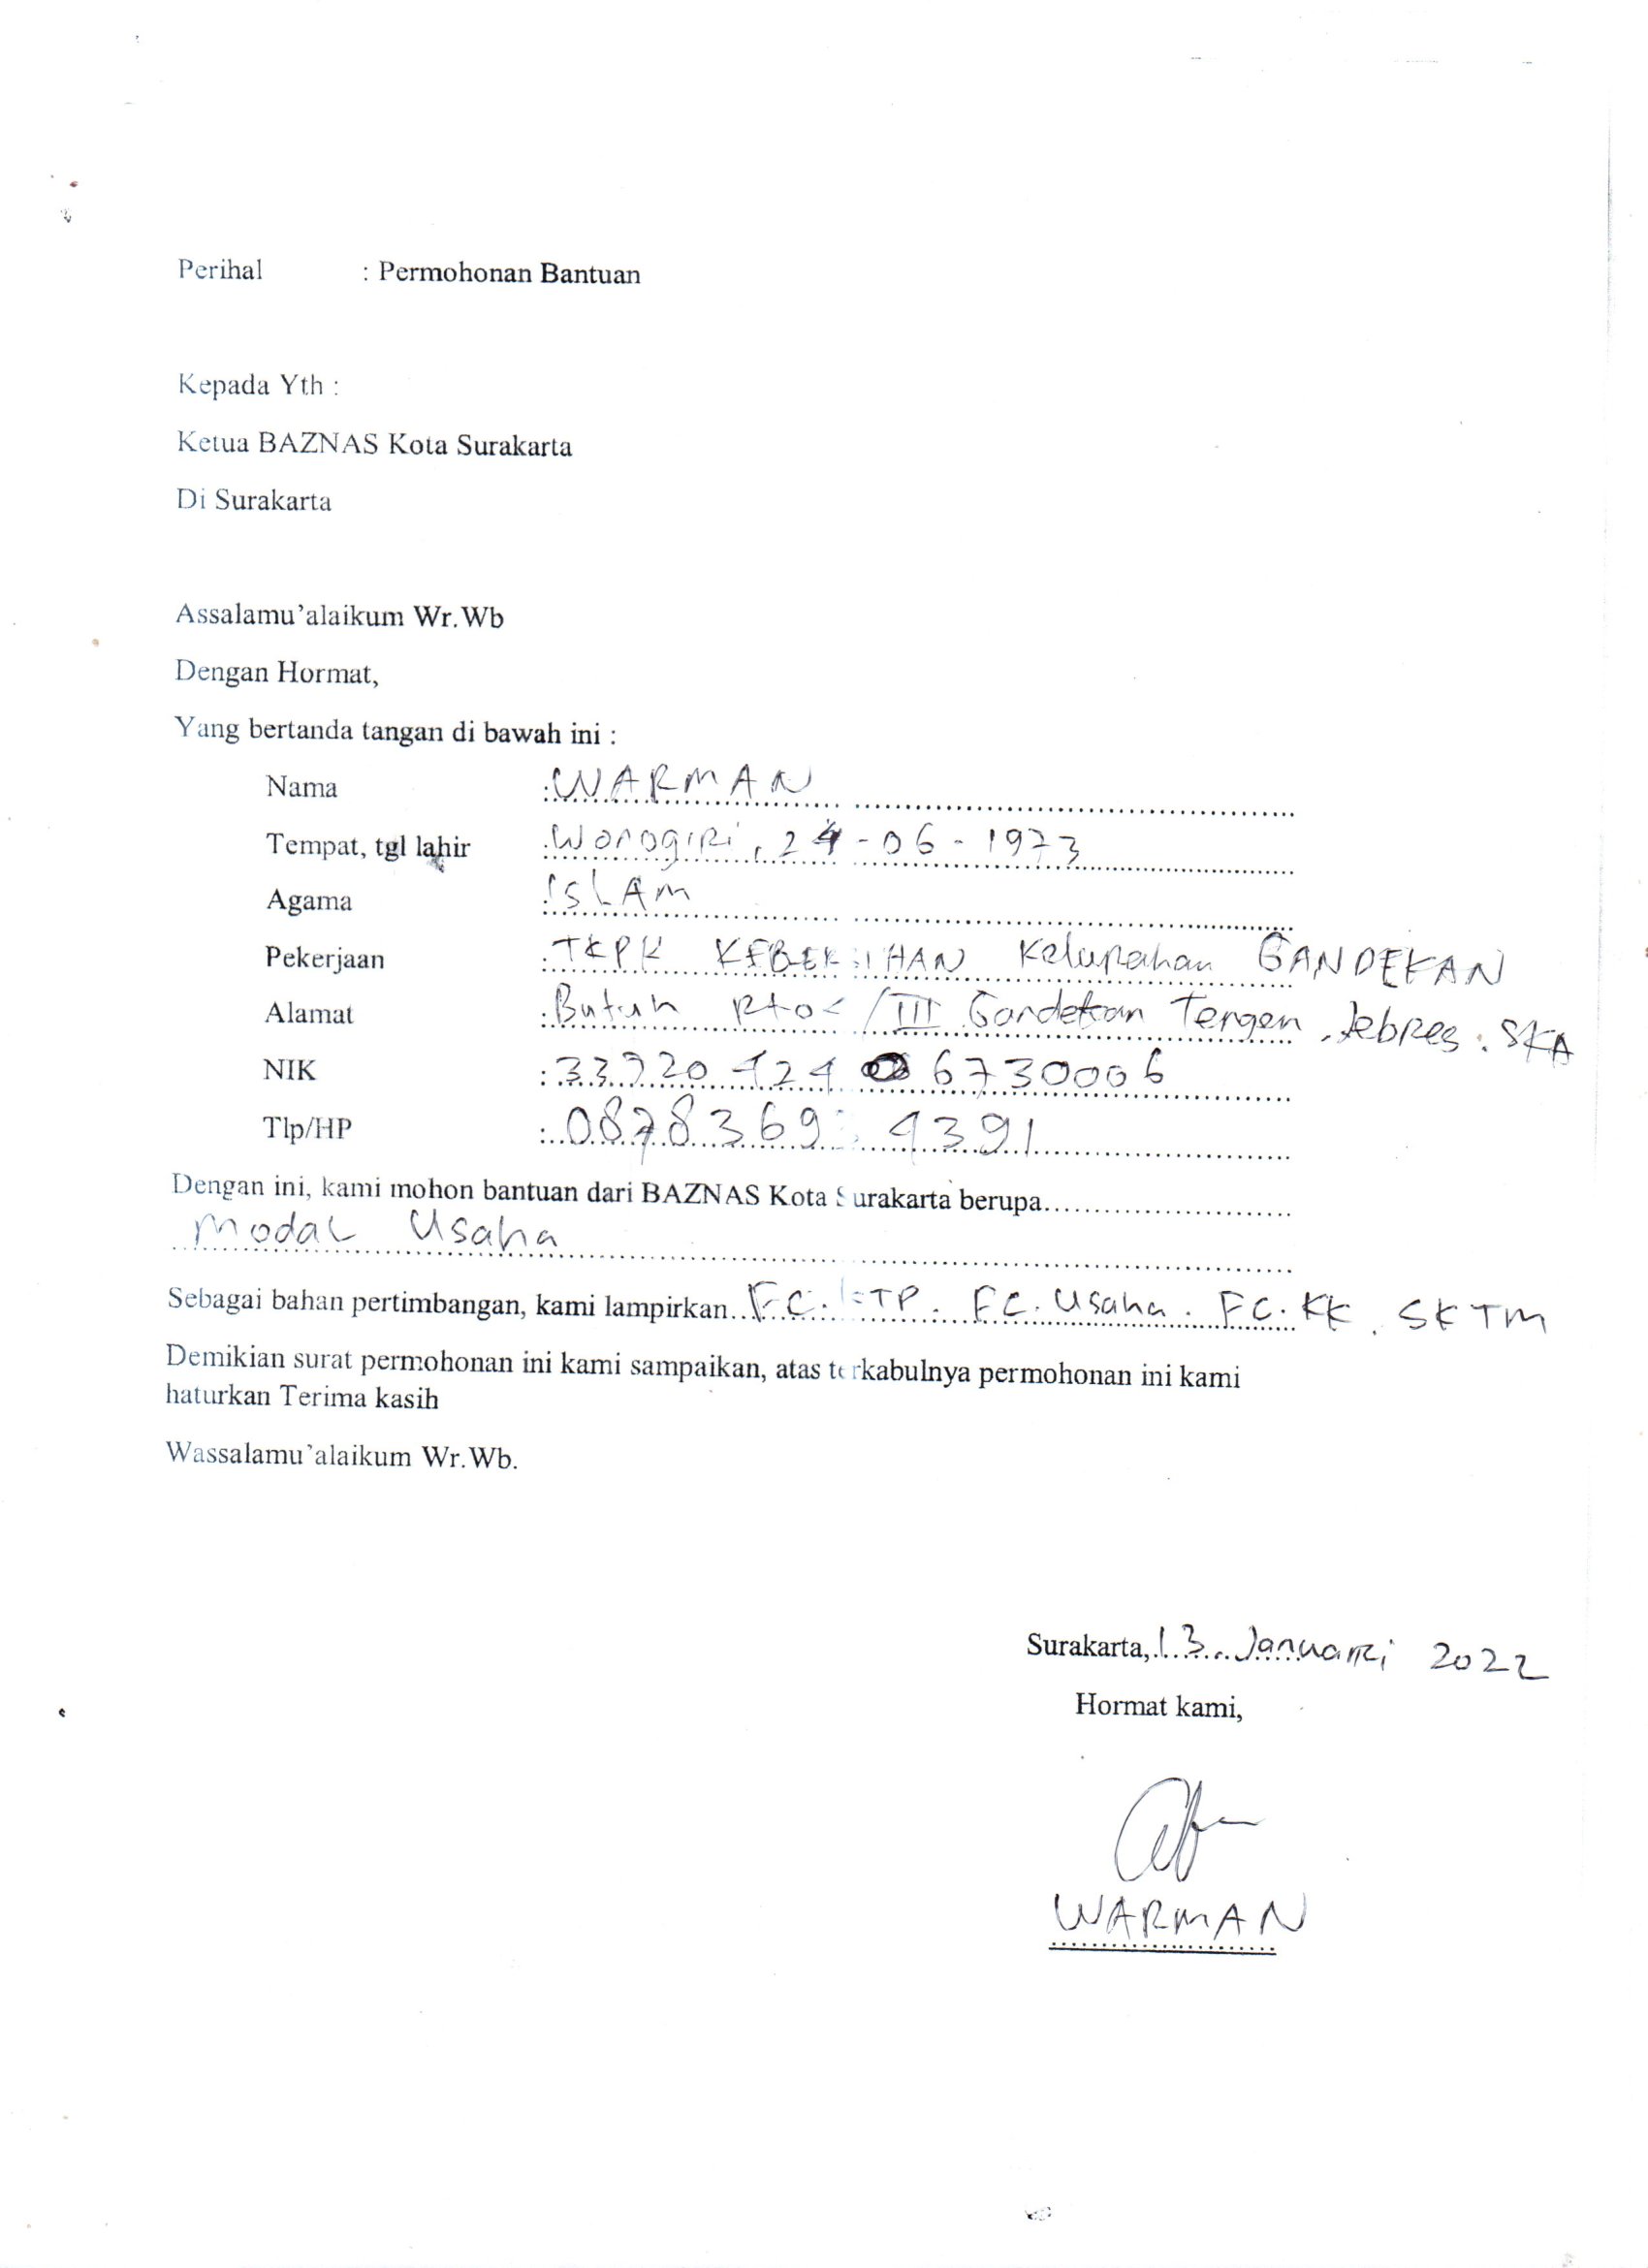 Perihal : Permohonan Bantuan
Kepada Yth :
Ketua BAZNAS Kota Surakarta
Di Surakarta
Assalamu'alaikum Wr.Wb
Dengan Hormat,
Yang bertanda tangan di bawah ini :
Nama : WARMAN
Tempat, tgl lahir : Wonogiri, 24-06-1973
Agama : ISLAM
Pekerjaan : TKPK KEBERSIHAN Kelurahan GANDEKAN
Alamat : Butuh /III Gandekan Tengen. Jebres. SKA
NIK :
Tlp/HP :
Dengan ini, kami mohon bantuan dari BAZNAS Kota Surakarta berupa........................
Modal Usaha
Sebagai bahan pertimbangan, kami lampirkan.. FC. KTP. FC. Usaha. FC. KK. SKTM
Demikian surat permohonan ini kami sampaikan, atas terkabulnya permohonan ini kami
haturkan Terima kasih
Wassalamu'alaikum Wr.Wb.
Surakarta, 13 Januari 2022
Hormat kami,
WARMAN